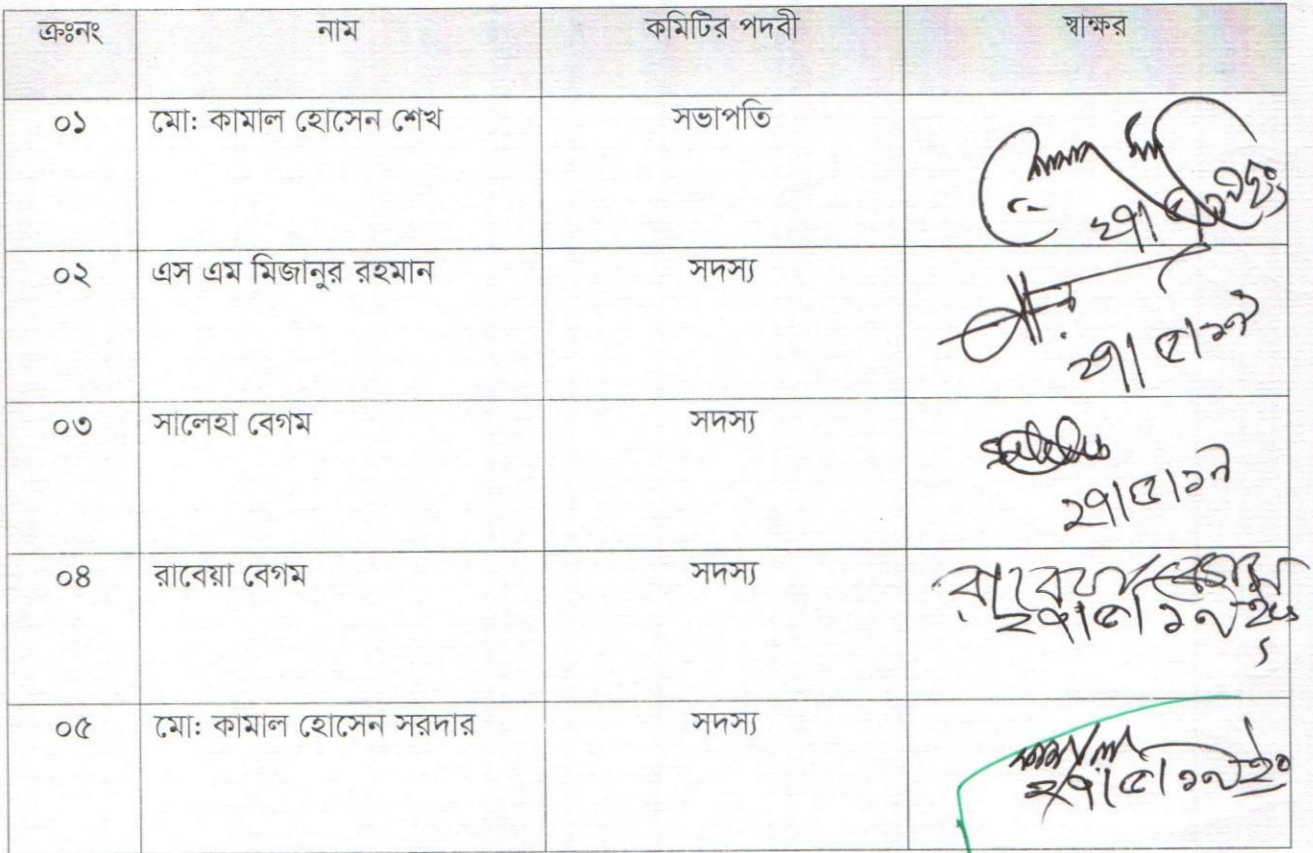 ক্রঃনং নাম কমিটির পদবী স্বাক্ষর
০১ মো: কামাল হোসেন শেখ সভাপতি
০২ এস এম মিজানুর রহমান সদস্য
০৩ সালেহা বেগম সদস্য
০৪ রাবেয়া বেগম সদস্য রাবেয়া বেগম
০৫ মো: কামাল হোসেন সরদার সদস্য